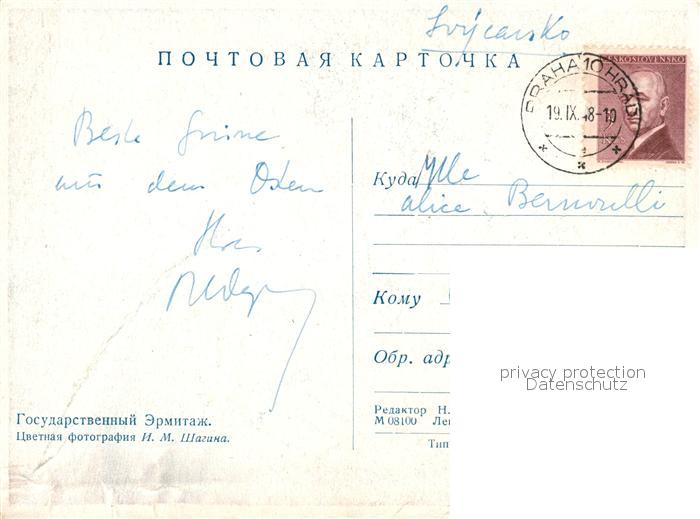 Švýcarsko
ПОЧТОВАЯ КАРТОЧКА
ČESKOSLOVENSKO
PRAHA 10 HRAD
19. IX. 48-10
Beste Grüsse
aus dem Osten
Куда Mlle
Alice Bernoulli
Кому
Обр. адр
privacy protection
Datenschutz
Редактор Н.
М 08100 Ле
Тип
Государственный Эрмитаж.
Цветная фотография И. М. Шагина.